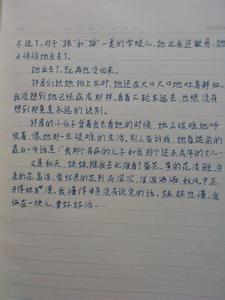 不说了。对于"跑"和"踩"一类的字眼儿，她比我还敏感。她
又悄悄地出去了。
她出去了，就再也没回来。
邻居们把她抬上车时，她还在大口大口地吐着鲜血。
我没想到她已经病成那样。看着三轮车远去，也绝没有
想到那竟是永远的诀别。
邻居的小伙子背着我去看她的时候，她正艰难地呼
吸着，像她那一生艰难的生活。别人告诉我，她昏迷前的
最后一句话是："我那个有病的儿子和我那个还未成年的女儿…
又是秋天，妹妹推我去北海看了菊花。黄的花淡雅，白
色的花高洁，紫红色的花热烈而深沉，泼泼洒洒，秋风中正
开得烂漫。我懂得母亲没有说完的话。妹妹也懂。我
俩在一块儿，要好好活…